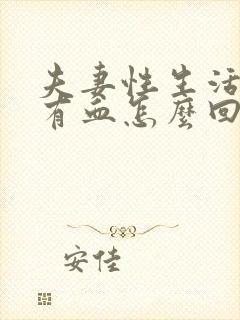 夫妻性生活
有血怎麽回
安佳